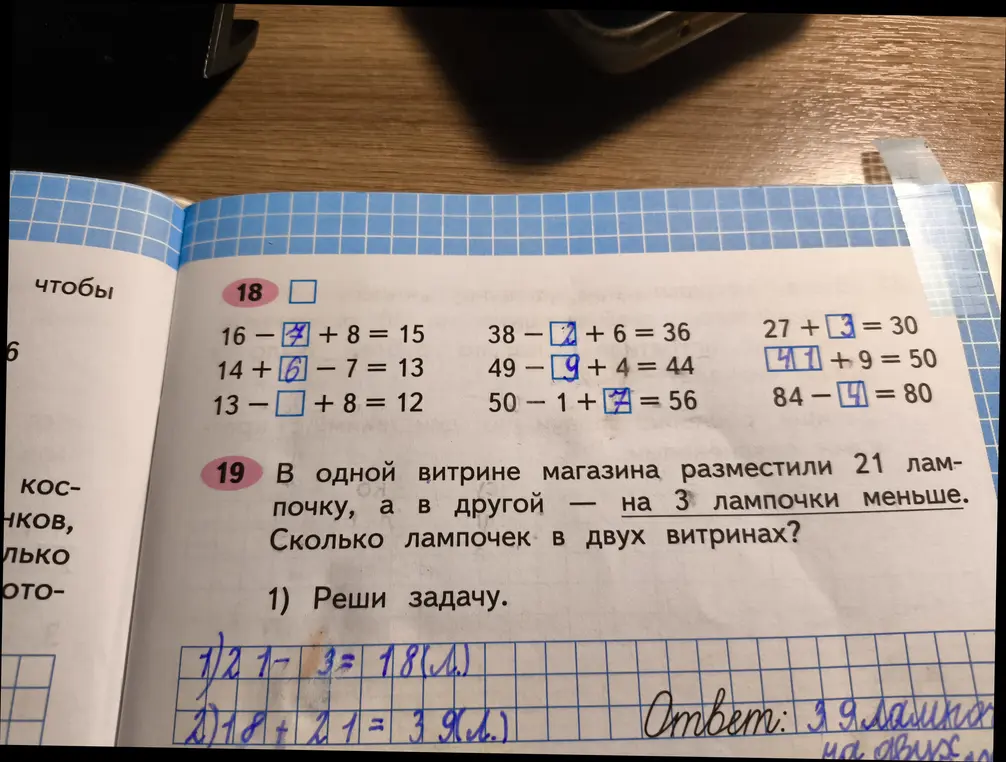 чтобы
6
кос-
нков,
лько
ото-
18 □
16 − 7 + 8 = 15 38 − 2 + 6 = 36 27 + 3 = 30
14 + 6 − 7 = 13 49 − 9 + 4 = 44 41 + 9 = 50
13 − □ + 8 = 12 50 − 1 + 7 = 56 84 − 4 = 80
19 В одной витрине магазина разместили 21 лам-
почку, а в другой — на 3 лампочки меньше.
Сколько лампочек в двух витринах?
1) Реши задачу.
1) 21 − 3 = 18 (л.)
2) 18 + 21 = 39 (л.) Ответ: 39 лампо
на двух